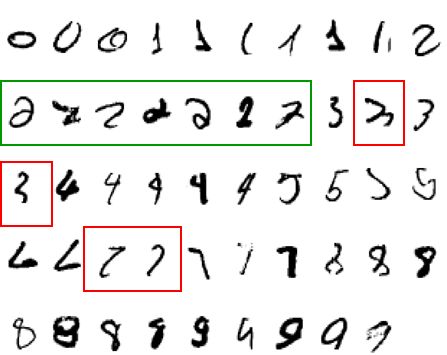 0 0 0 1 1 1 1 1 1 2
2 2 2 2 2 2 2 3 3 3
3 4 4 4 4 4 5 5 5 5
6 6 7 7 7 7 7 8 8 8
8 8 8 8 9 9 9 9 9